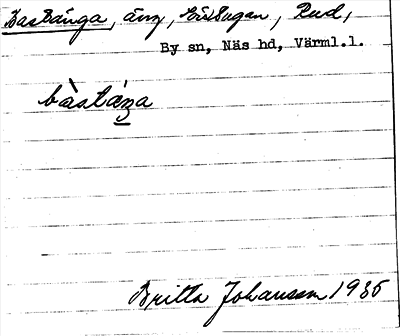 Bastänga, äng, Lövhagen, Rud,
By sn, Näs hd, Värml.l.
bàstáŋa
Britta Johansson 1935